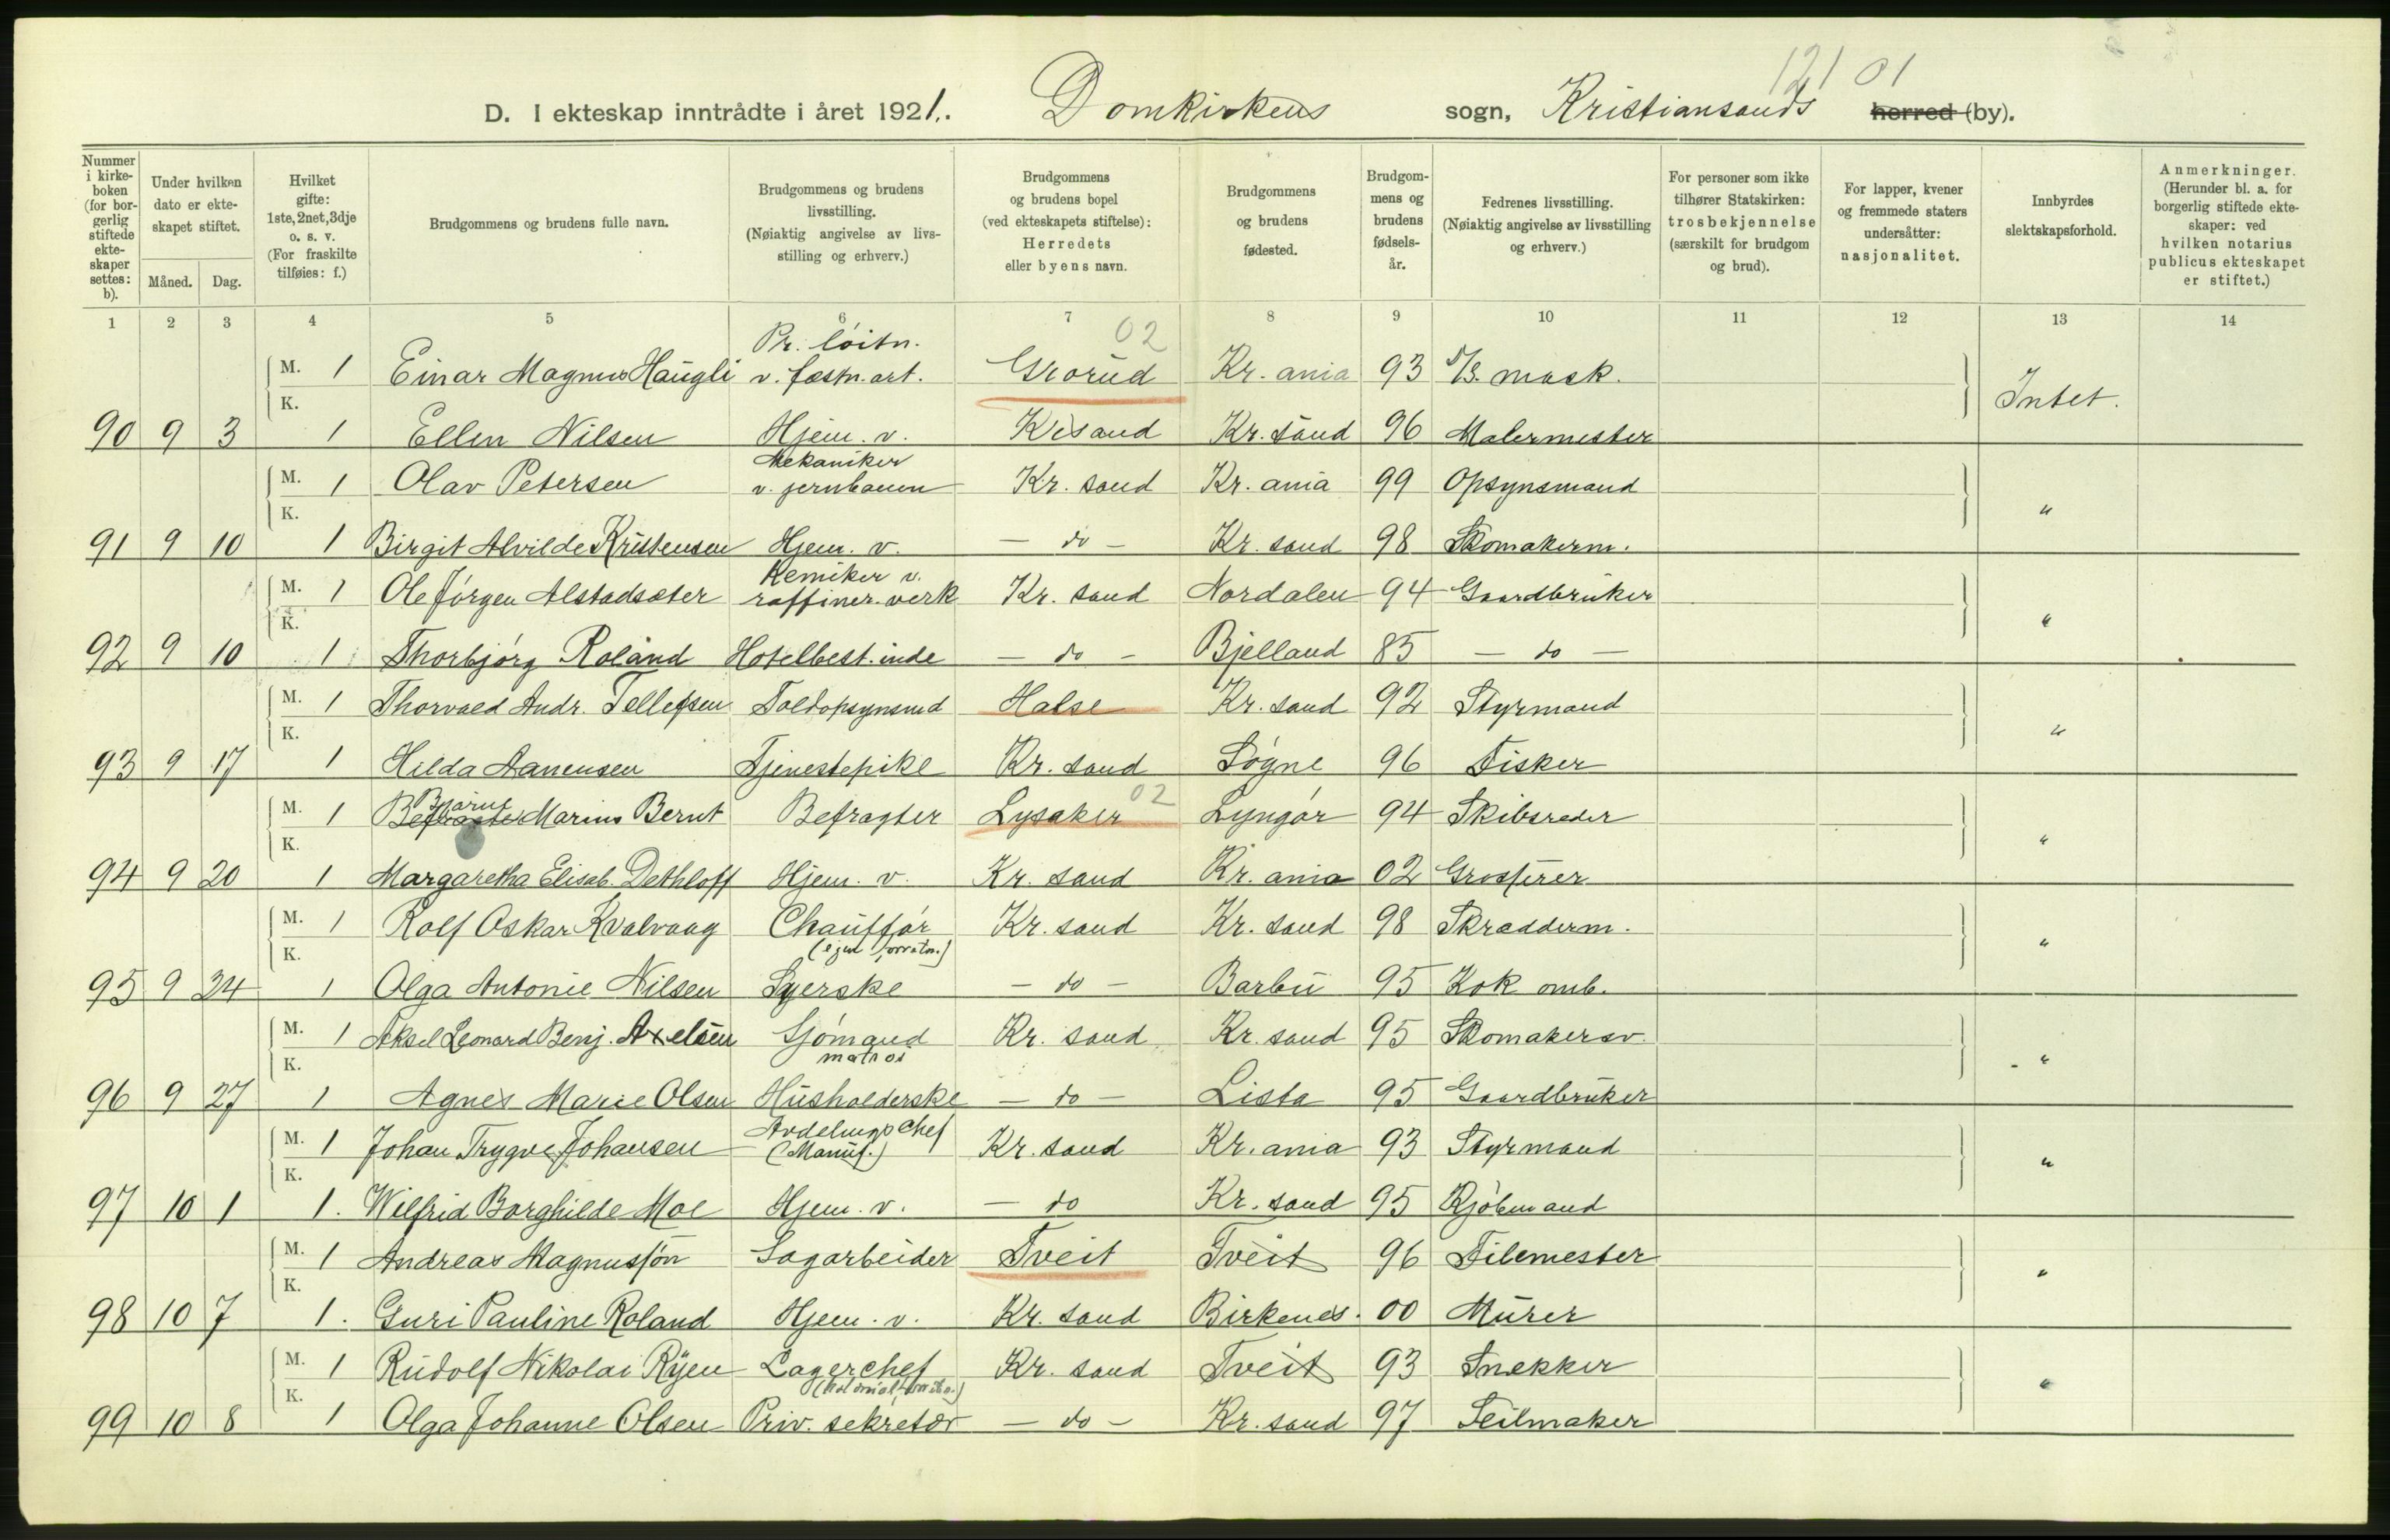 121 01
D. I ekteskap inntrådte i året 1921. Domkirkens sogn, Kristiansands herred (by).
Nummer i kirke-boken (for bor-gerlig stiftede ekte-skaper settes: b).
Under hvilken dato er ekte-skapet stiftet.
Måned. Dag.
Hvilket gifte: 1ste, 2net, 3dje o. s. v. (For fraskilte tilføies: f.)
Brudgommens og brudens fulle navn.
Brudgommens og brudens livsstilling. (Nøiaktig angivelse av livs-stilling og erhverv.)
Brudgommens og brudens bopel (ved ekteskapets stiftelse): Herredets eller byens navn.
Brudgommens og brudens fødested.
Brudgom-mens og brudens fødsels-år.
Fedrenes livsstilling. (Nøiaktig angivelse av livsstilling og erhverv.)
For personer som ikke tilhører Statskirken: trosbekjennelse (særskilt for brudgom og brud).
For lapper, kvener og fremmede staters undersåtter: nasjonalitet.
Innbyrdes slektskapsforhold.
Anmerkninger. (Herunder bl. a. for borgerlig stiftede ekte-skaper: ved hvilken notarius publicus ekteskapet er stiftet.)
1 2 3 4 5 6 7 8 9 10 11 12 13 14
Pr. løitn. 02
M. 1 Einar Magnus Haugli v. fæstn. art. Grorud Kr. ania 93 mask.
K. Intet.
90 9 3 1 Ellen Nilsen Hjem. v. Kr.sand Kr. sand 96 Malermester
Mekaniker
M. 1 Olav Petersen v. jernbanen Kr. sand Kr. ania 99 Opsynsmand
K. "
91 9 10 1 Birgit Alvilde Kristensen Hjem. v. — do — Kr. sand 98 Skomakerm.
Kemiker v.
M. 1 Ole Jørgen Alstadsæter raffiner. verk Kr. sand Nordalen 94 Gaardbruker
K. "
92 9 10 1 Thorbjørg Roland Hotelbest. inde — do — Bjelland 85 — do —
M. 1 Thorvald Andr. Tellefsen Toldopsynsmd Halse Kr. sand 92 Styrmand
K. "
93 9 17 1 Hilda Aanensen Tjenestepike Kr. sand Søgne 96 Fisker
Bjarne 02
M. 1 Befragte Marius Bernt Befragter Lysaker Lyngør 94 Skibsreder
K. "
94 9 20 1 Margaretha Elisab. Dethloff Hjem. v. Kr. sand Kr. ania 02 Grosserer
M. 1 Rolf Oskar Kvalvaag Chauffør Kr. sand Kr. sand 98 Skrædderm.
K. "
95 9 24 1 Olga Antonie Nilsen Syerske — do — Barbu 95 Kok omb.
M. 1 Aksel Leonard Benj. Axelsen Sjømand Kr. sand Kr. sand 95 Skomakersv.
K. matros "
96 9 27 1 Agnes Marie Olsen Husholderske — do — Lista 95 Gaardbruker
Avdelingschef
M. 1 Johan Trygve Johansen (Manuf.) Kr. sand Kr. ania 93 Styrmand
K. "
97 10 1 1. Wilfrid Borghilde Moe Hjem. v. — do Kr. sand 95 Kjøbmand
M. 1 Andreas Magnussøn Sagarbeider Tveit Tveit 96 Filemester
K. "
98 10 7 1. Guri Pauline Roland Hjem. v. Kr. sand Birkenes. 00 Murer
M. 1 Rudolf Nikolai Ryen Lagerchef Kr. sand Tveit 93 Snekker
K. "
99 10 8 1 Olga Johanne Olsen Priv. sekretær — do — Kr. sand 97 Seilmaker